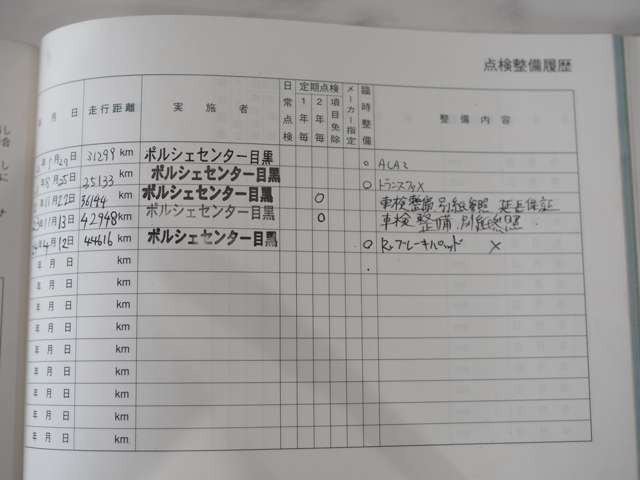 点検整備履歴
年 月 日 走行距離 実施者 日常点検 定期点検 1年毎 2年毎 項目免除 メーカー指定 臨時整備 整備内容
年 月29日 31299 km ポルシェセンター目黒 ○
年 月25日 25133 km ポルシェセンター目黒 ○ トランスファ X
年11月22日 36144 km ポルシェセンター目黒 ○ 車検整備 別紙参照 延長保証
年11月13日 42948 km ポルシェセンター目黒 ○ 車検整備 別紙参照
年4月12日 44616 km ポルシェセンター目黒 ○ Rr ブレーキパッド X
年 月 日 km
年 月 日 km
年 月 日 km
年 月 日 km
年 月 日 km
年 月 日 km
年 月 日 km
年 月 日 km
年 月 日 km